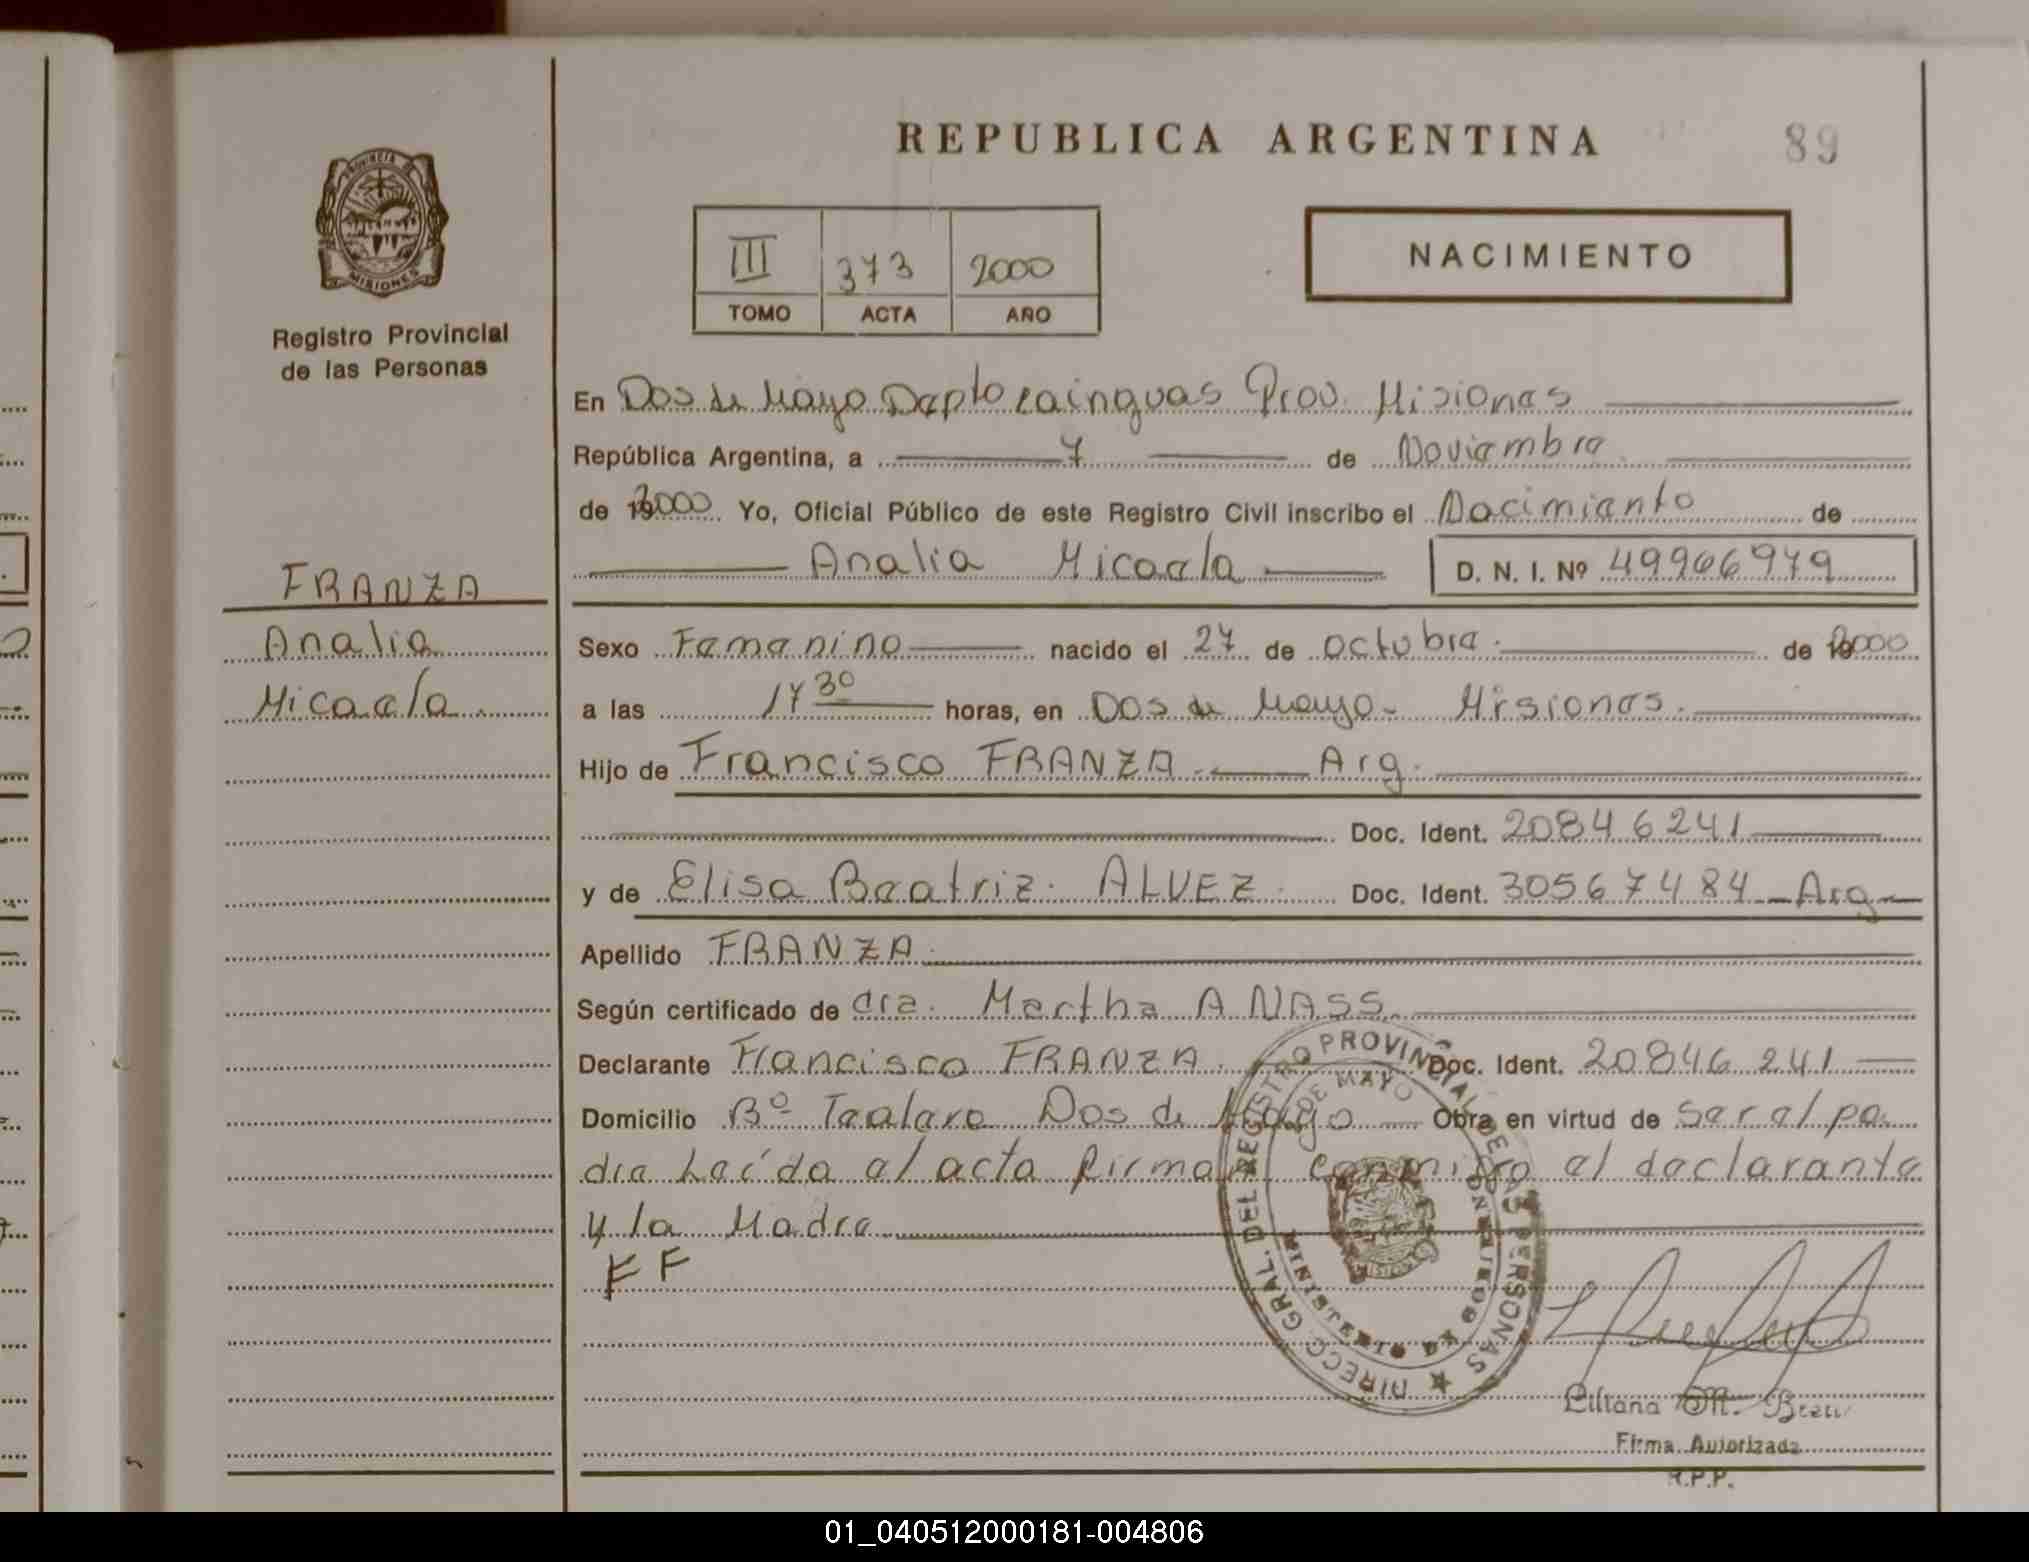 REPUBLICA ARGENTINA
89
PROVINCIA D
MISIONES
Registro Provincial
de las Personas
III 373 2000
TOMO ACTA AÑO
NACIMIENTO
En Dos de Mayo Depto cainguas Prov. Misiones
República Argentina, a 7 de Noviembre
de 2000 Yo, Oficial Público de este Registro Civil inscribo el Nacimiento de
Analia Micaela D. N. I. Nº 49906979
FRANZA
Analia
Micaela.
Sexo Femenino nacido el 27 de octubre. de 2000
a las 17 30 horas, en Dos de Mayo- Misiones.
Hijo de Francisco FRANZA. Arg.
Doc. Ident. 20846241
y de Elisa Beatriz. ALVEZ. Doc. Ident. 30567484 Arg
Apellido FRANZA.
Según certificado de dra. Martha A NASS.
Declarante Francisco FRANZA. Doc. Ident. 20846241
Domicilio Bº Tealero Dos de Mayo Obra en virtud de ser el pa
dre Leída el acta firman conmigo el declarante
y la Madre
F F
DIRECC. GRAL. DEL REGISTRO PROVINCIAL DE LAS PERSONAS
DE MAYO
Liliana M.
Firma Autorizada
R.P.P.
01_040512000181-004806